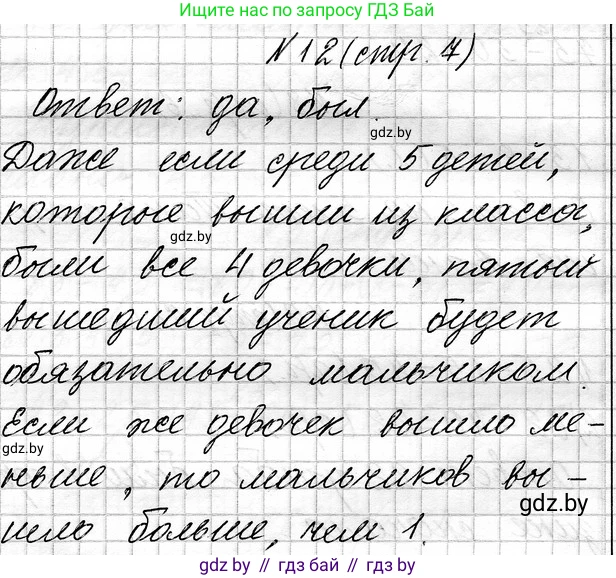 Ищите нас по запросу ГДЗ Бай
№12 (стр. 7)
Ответ: да, был.
gdz.by
Даже если среди 5 детей,
которые вышли из класса,
gdz.by
были все 4 девочки, пятый
вышедший ученик будет
обязательно мальчиком.
Если же девочек вышло ме-
gdz.by
ньше, то мальчиков вы-
gdz.by
шло больше, чем 1.
gdz.by // гдз бай // гдз.бай